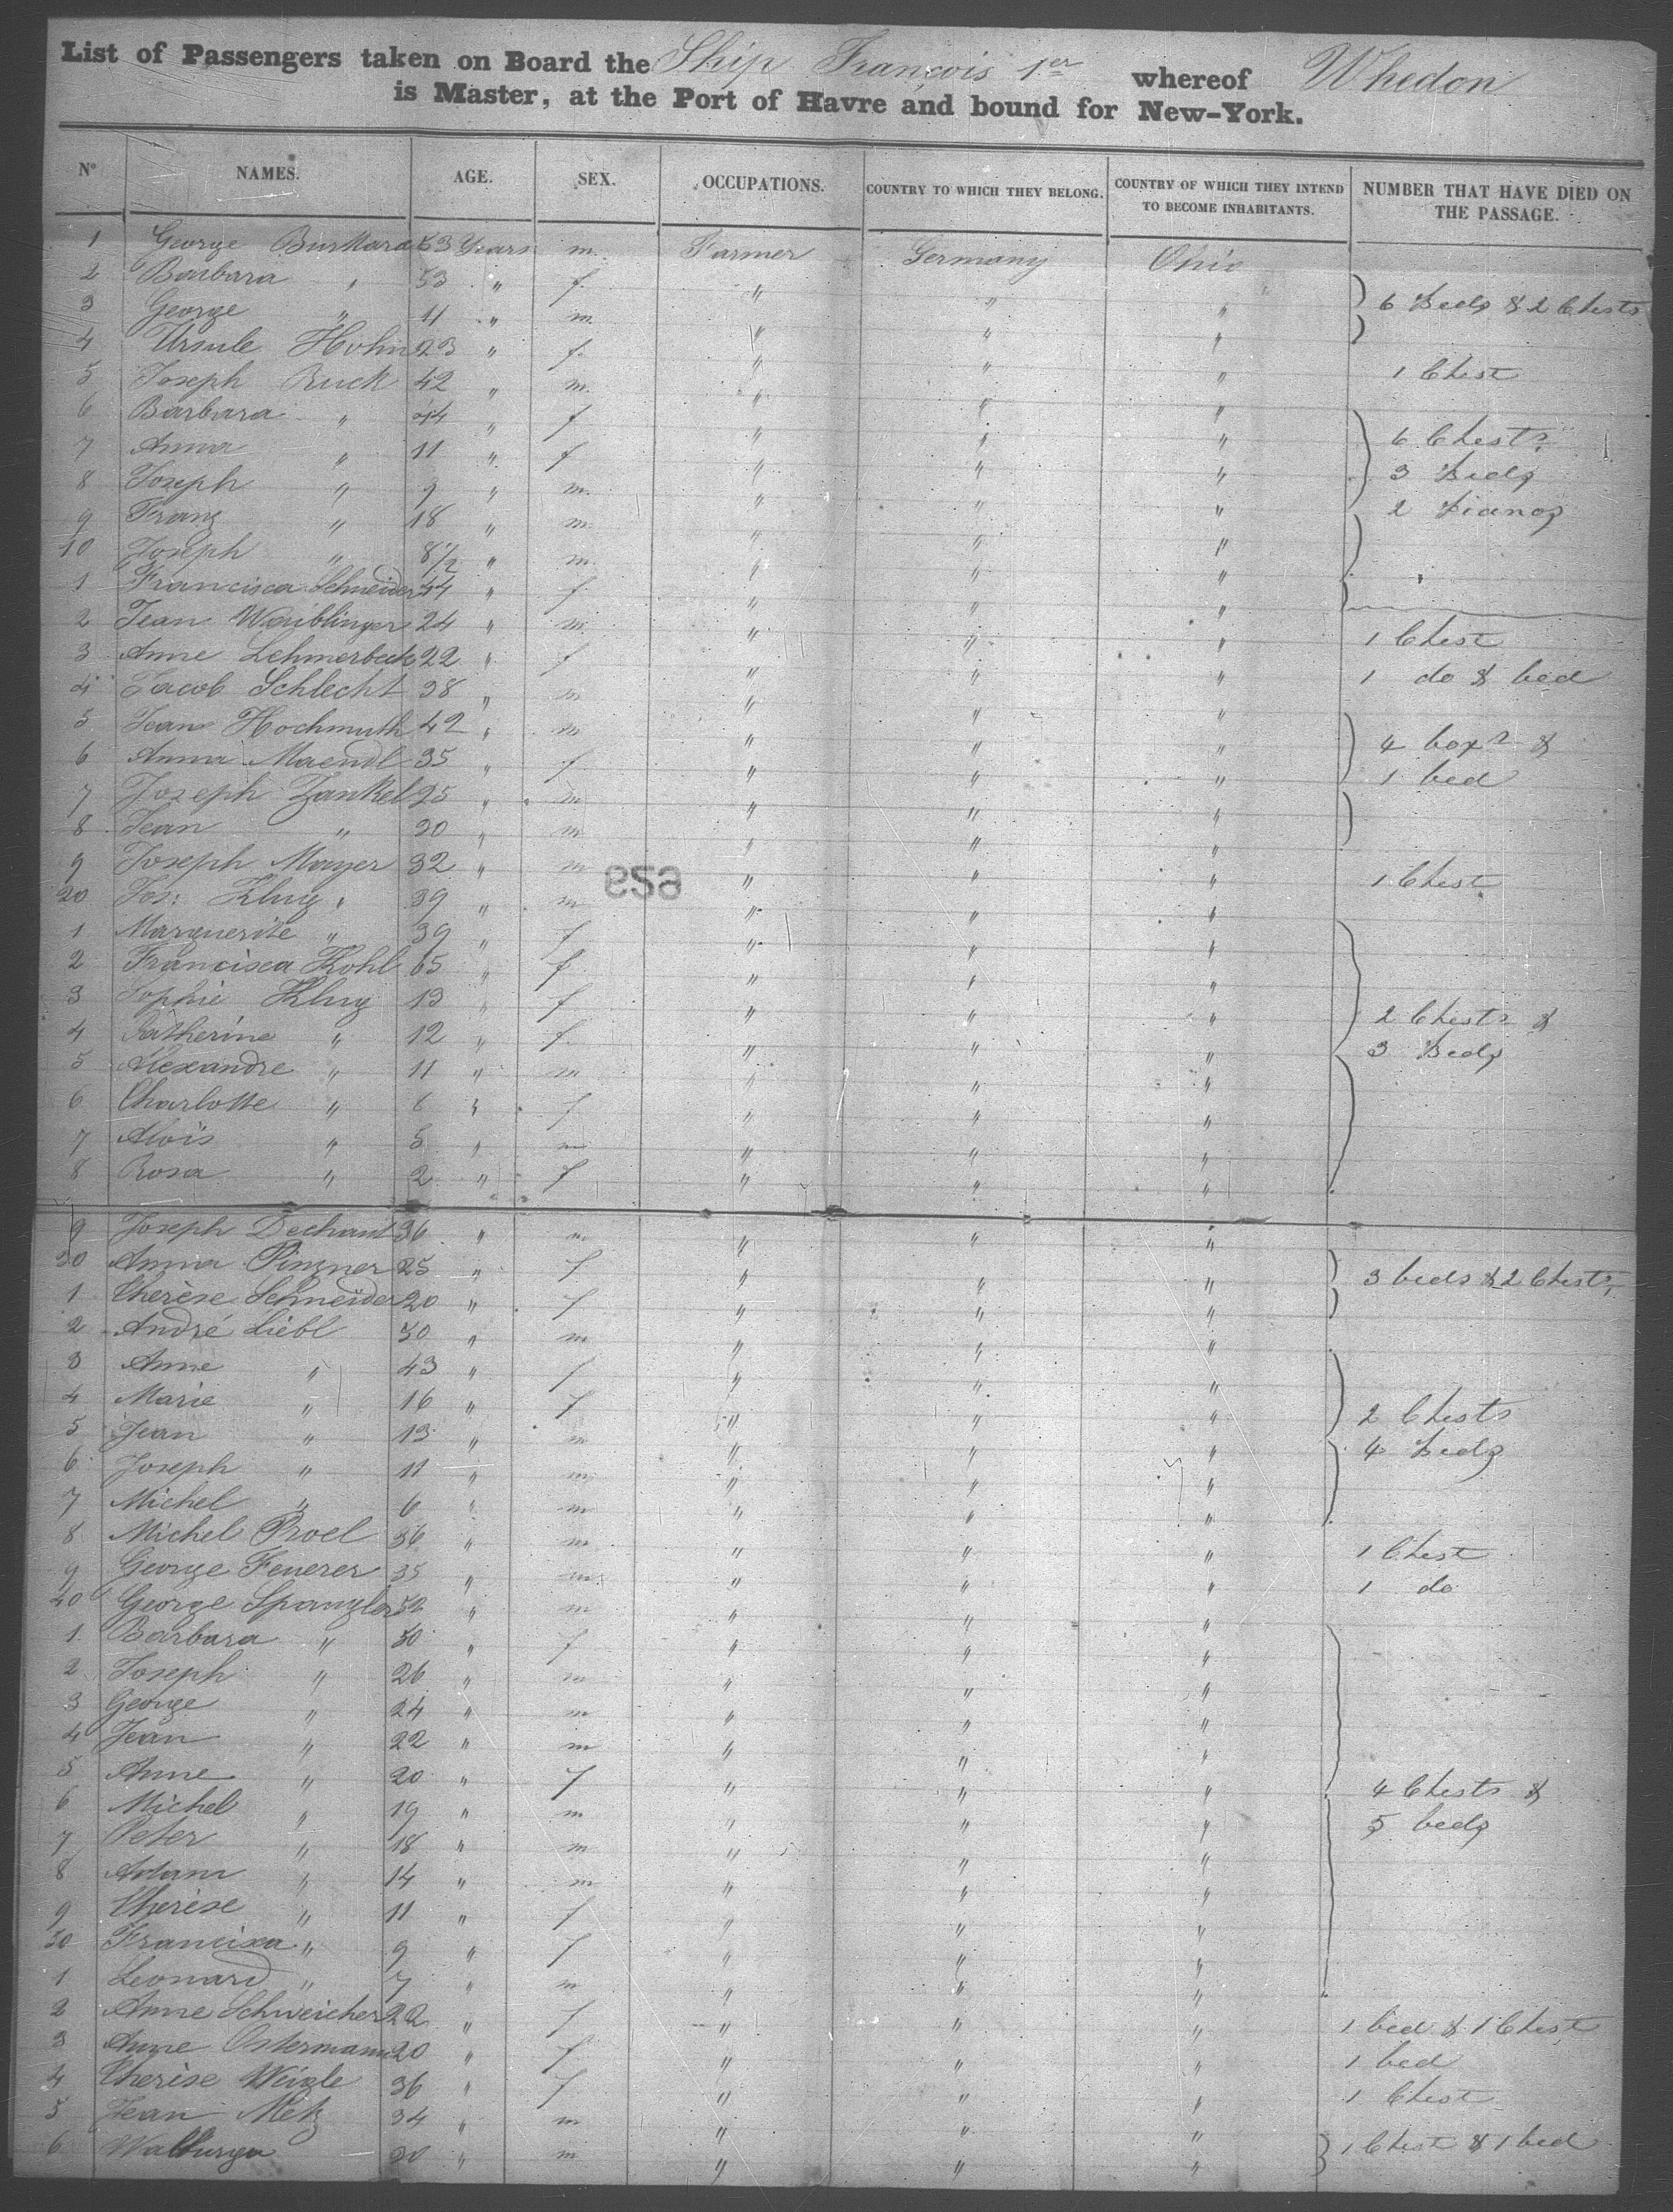 List of Passengers taken on Board the Ship François 1er whereof Whedon
is Master, at the Port of Havre and bound for New-York.
No NAMES. AGE. SEX. OCCUPATIONS. COUNTRY TO WHICH THEY BELONG. COUNTRY OF WHICH THEY INTEND TO BECOME INHABITANTS. NUMBER THAT HAVE DIED ON THE PASSAGE.
1 George Burkard 53 Years m. Farmer Germany Ohio
2 Barbara " 53 " f. " " "
3 George " 11 " m " " " 6 Beds & 2 Chests
4 Ursule Hohn 23 " f. " " "
5 Joseph Ruck 42 " m. " " " 1 Chest
6 Barbara " 44 " f " " "
7 Anna " 11 " f " " " 6 Chests
8 Joseph " 9 " m. " " " 3 Beds
9 Franz " 18 " m. " " " 2 Pianos
10 Joseph " 8/12 " m. " " "
1 Francisca Schneider 44 " f " " "
2 Jean Waiblinger 24 " m. " " " 1 Chest
3 Anne Lehmerbeck 22 " f " " " 1 do & bed
4 Jacob Schlecht 38 " m " " "
5 Jean Hochmuth 42 " m " " " 4 boxs &
6 Anna Maendl 35 " f " " " 1 bed
7 Joseph Zankel 25 " m " " "
8 Jean " 20 " m " " "
9 Joseph Mayer 32 " m " " " 1 Chest
629
20 Jos: Klug 39 " m " " "
1 Marguerite " 39 " f " " "
2 Francisca Kohl 65 " f " " "
3 Sophie Klug 13 " f " " " 2 Chests &
4 Catherine " 12 " f. " " " 3 Beds
5 Alexandre " 11 " m " " "
6 Charlotte " 6 " f " " "
7 Aloïs " 5 " m " " "
8 Rosa " 2 " f " " "
9 Joseph Dechant 36 " m " " "
30 Anna Pinzner 25 " f " " " 3 beds & 2 Chests
1 Therèse Schneider 20 " f " " "
2 André Liebl 50 " m " " "
3 Anne " 43 " f " " "
4 Marie " 16 " f " " " 2 Chests
5 Jean " 13 " m " " " 4 Beds
6 Joseph " 11 " m " " "
7 Michel " 6 " m " " "
8 Michel Proel 36 " m " " " 1 Chest
9 George Feuerer 35 " m " " " 1 do
40 George Spangler 52 " m " " "
1 Barbara " 50 " f " " "
2 Joseph " 26 " m " " "
3 George " 24 " m " " "
4 Jean " 22 " m " " "
5 Anne " 20 " f " " " 4 Chests &
6 Michel " 19 " m " " " 5 beds
7 Peter " 18 " m " " "
8 Adam " 14 " m " " "
9 Therèse " 11 " f " " "
50 Francisca " 9 " f " " "
1 Leonard " 7 " m " " "
2 Anne Schweicher 22 " f " " " 1 bed & 1 Chest
3 Anne Ostermann 20 " f " " " 1 bed
4 Therèse Weigle 36 " f " " " 1 Chest
5 Jean Metz 34 " m " " "
6 Walburga 30 " m " " " 1 Chest & 1 bed